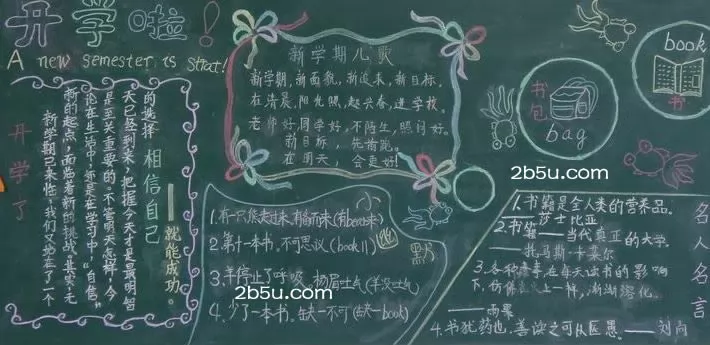 开学啦!
A new semester is start!
开学了
新学期已来临,我们又站在了一个
新的起点,面临着新的挑战。其实,无
论在生活中,还是在学习中,“自信”
是至关重要的。不管明天怎样,今
天已经到来,把握今天才是最明智
的选择。
相信自己
——就能成功。
新学期儿歌
新学期,新面貌,新起表,新目标,
在清晨,阳光照,起兴奋,进学校。
老师好,同学好,不陌生,照问好。
新目标,先指跑。
在明天,会更好
小
幽
默
1.有一只熊走过来,有备而来(有bear来)
2.第十一本书,不可思议(book11)
3.羊停止了呼吸。扬眉士气(羊没士气)
4.少了一本书。缺一不可(缺一book)
书包
bag
book
书
名人名言
1.书籍是全人类的营养品。
——莎士比亚
2.书籍——当代真正的大学.
——托马斯·卡莱尔
3.各种蠢事在每天读书的影响
下,仿佛 上一样,渐渐溶化。
——雨果
4.书犹药也,善读之可以医愚。——刘向
2b5u.com
2b5u.com
2b5u.com